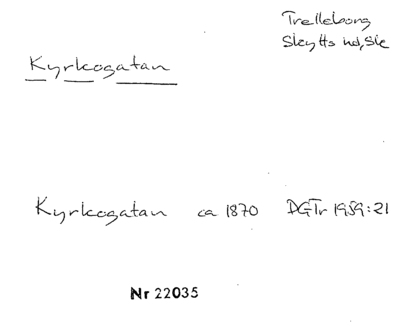 Trelleborg
Skytts hd, Sk
Kyrkogatan
Kyrkogatan ca 1870 DGTr 1959:21
Nr 22035